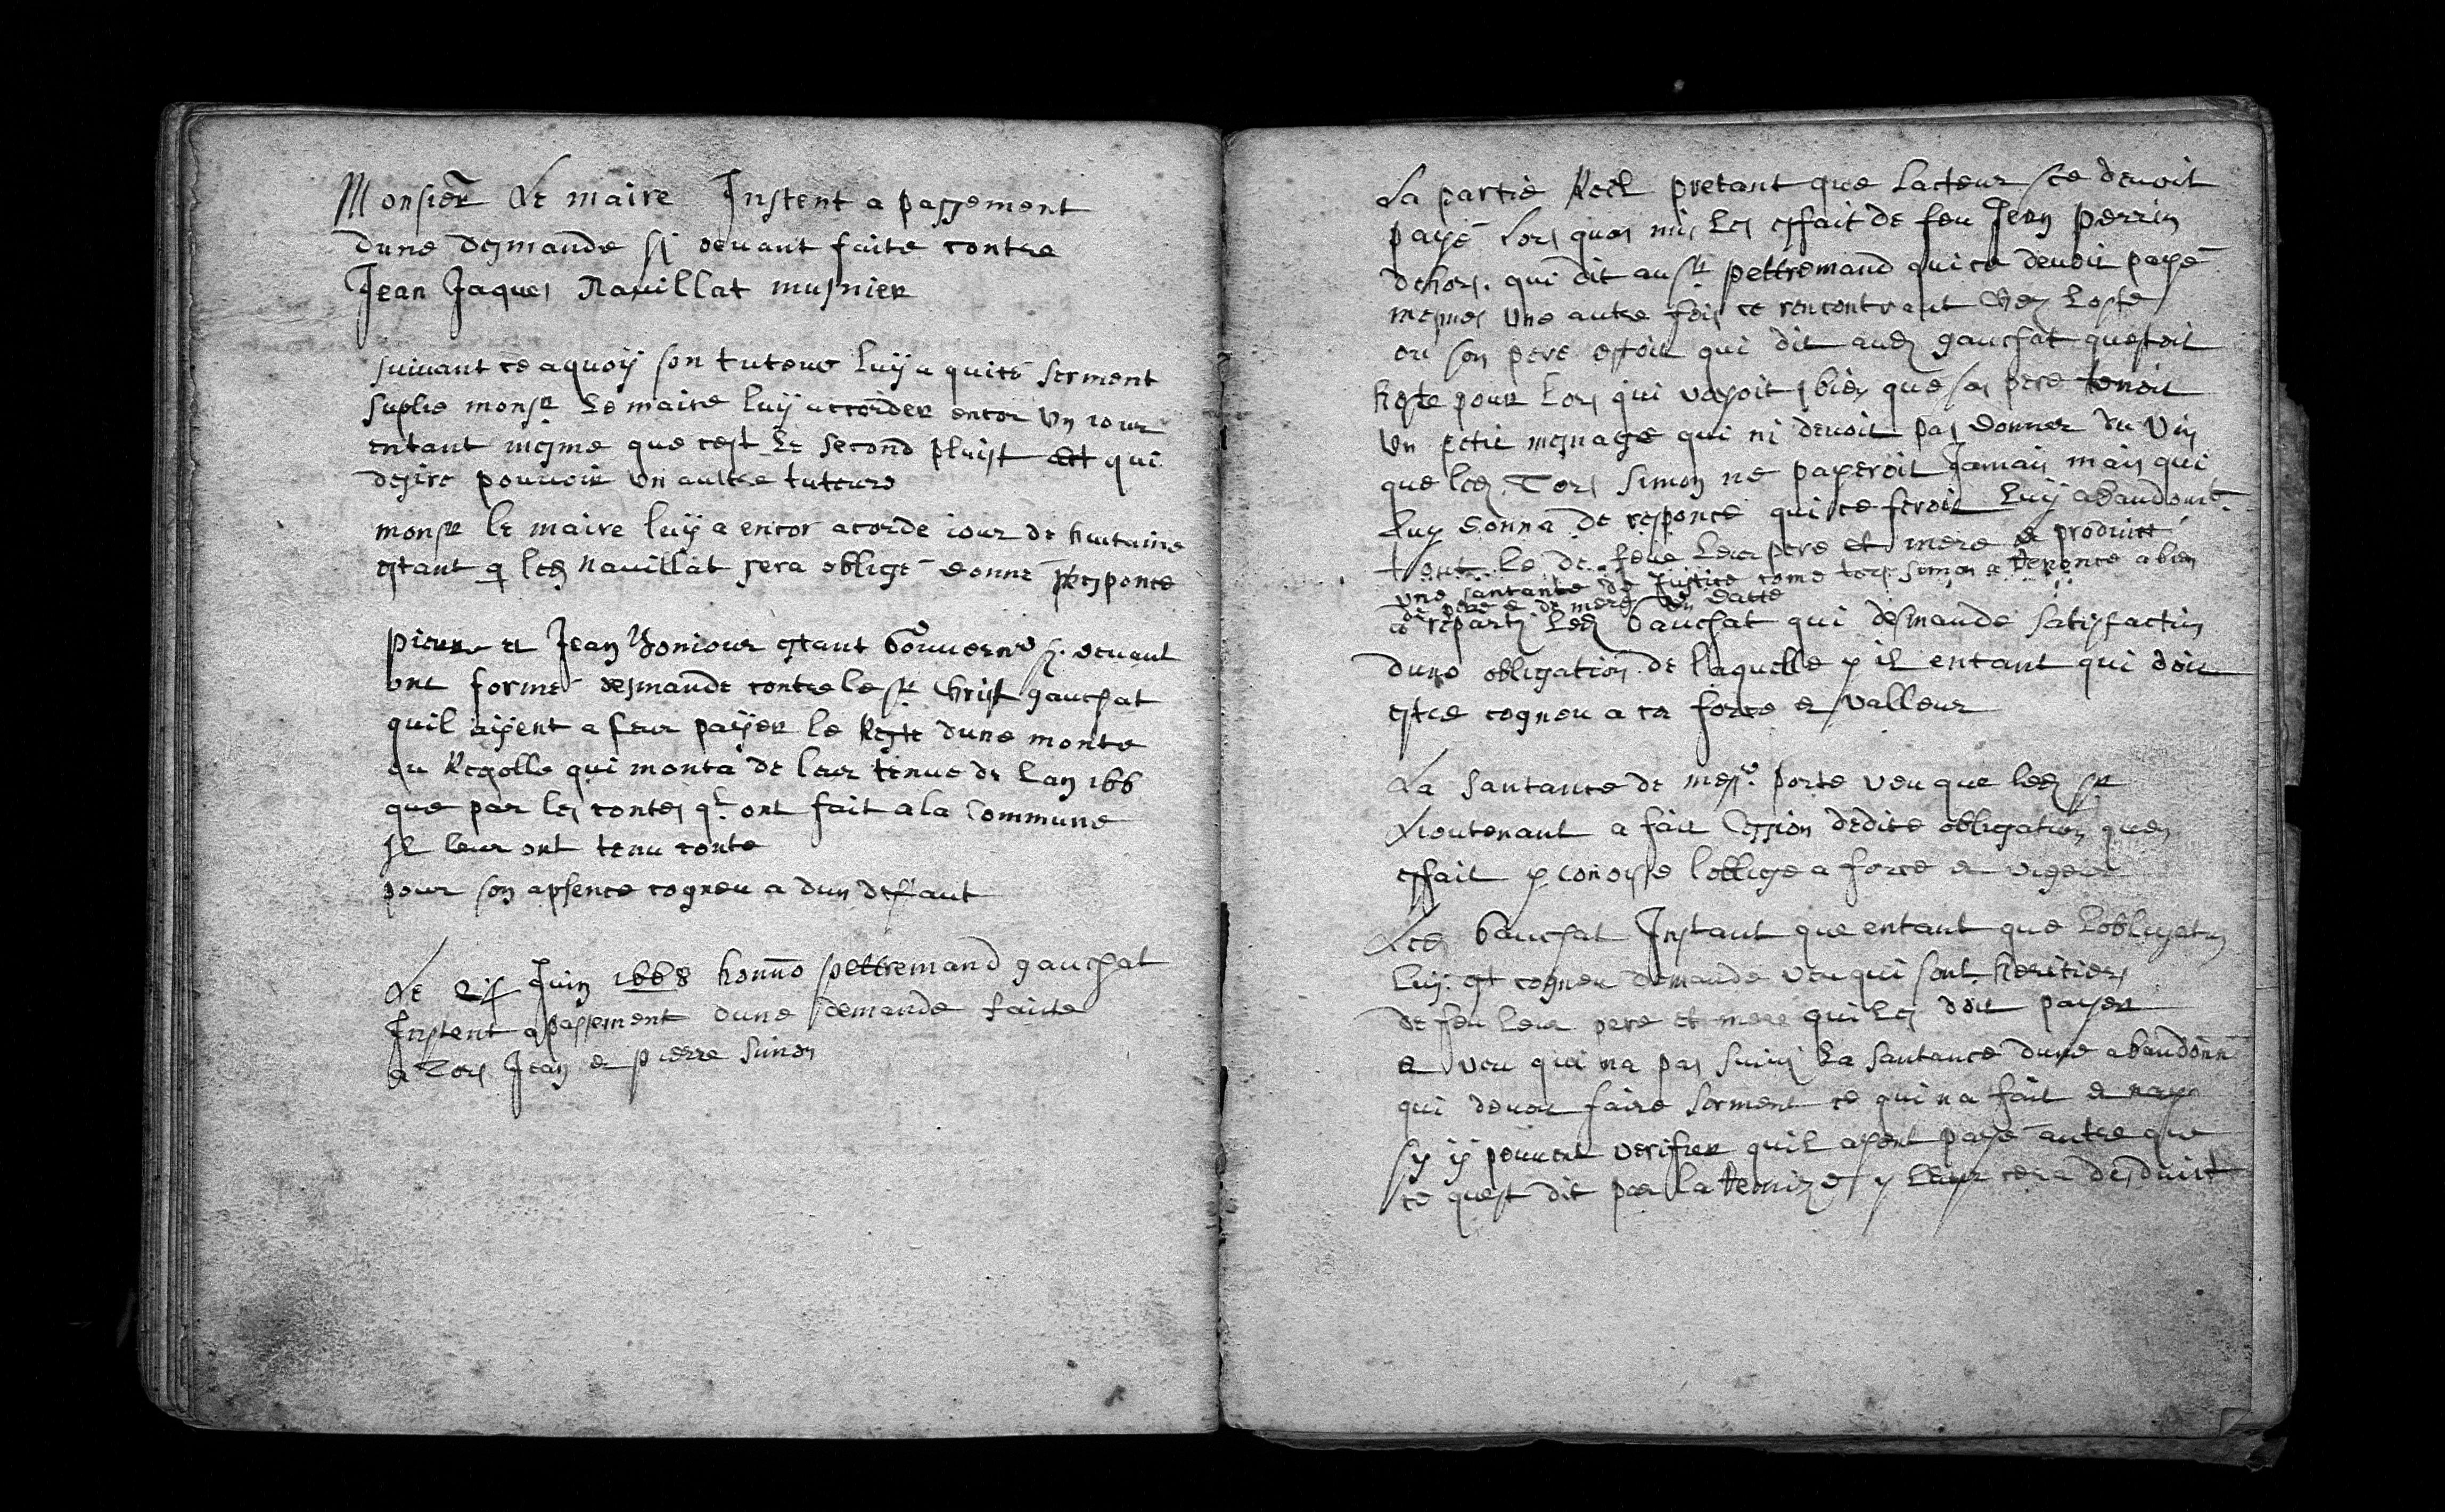 Monsieur Le maire Instent a passement
dune desmande sy devant faite contre
Jean Jaques Navillat musnier
suivant ce aquoÿ son tuteur luÿ a quité serment
suplie monsr le maire luÿ accorder encor un iour
entant mesme que cest le second plaist qui
desire pouvoir un aultre tuteur
monsr le maire luÿ a encor acorde iour de huitaine
estant q led Navillat sera obligé donné responce
pierre et Jean Boniour estant Gouvernr sy devant
ont formé desmande contre le sr Christ gauchat
quil aÿent a leur paÿer le Reste dune monte
du Regolle qui monta de leur tenue de Lan 166
que par les contes ql ont fait a la Commune
Il leur ont tenu conte
pour son apsence cogneu a dun deffaut
Le 24 Juin 1668 honno pettremand gauchat
Instent a passement dune demande faitte
a Tors Jean et pierre Simon
La partie Reel pretant que lacteur ce devoit
payé Lors quon mis les effait de feu Jean perrin
dehors. qui dit au sr pettremand qui ce devoit payé
mesmes une autre fois ce rencontrant chez Loste
ou son pere estoit qui dit aud gauchat questoit
hoste pour lors qui voyoit bien que son pere tenoit
un petit mesnage qui ni devoit pas donner du vin
que led. Tors Simon ne payeroit Jamais mais qui
luy donna de responce qui ce feroit luÿ abandonné
tout le de feue leur pere et mere et produict
une santance de Justice come Tors Simon a renonce a bien
de pere et de mere en datte
a reparti led Gauchat qui desmande satisfaction
dune obligation de laquelle y il entant qui doit
estre cogneu a ca force et valleur
La santance de messrs porte veu que led sr
Lieutenant a fait Cession dedite obligation quen
effait y conoisse loblige a force et vigeur
Led Gauchat Instant que entant que Lobligation
luÿ est cogneu demande veu qui sont heritiers
de feu leur pere et mere qui les doit payer
et veu qui na pas suivi la santance dune abandonné
qui devoit faire serment ce qui na fait et
sy ÿ peuvent verifier quil ayent payé autre que
ce quest dit par la y leur cera desduict